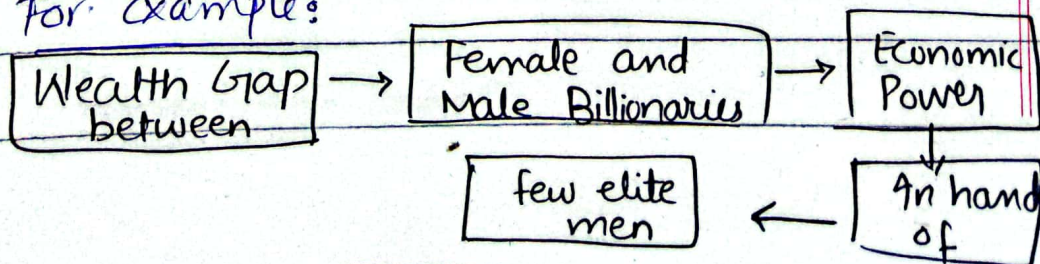 For example:
Wealth Gap
between
Female and
Male Billionaries
Economic
Power
In hand
of
few elite
men